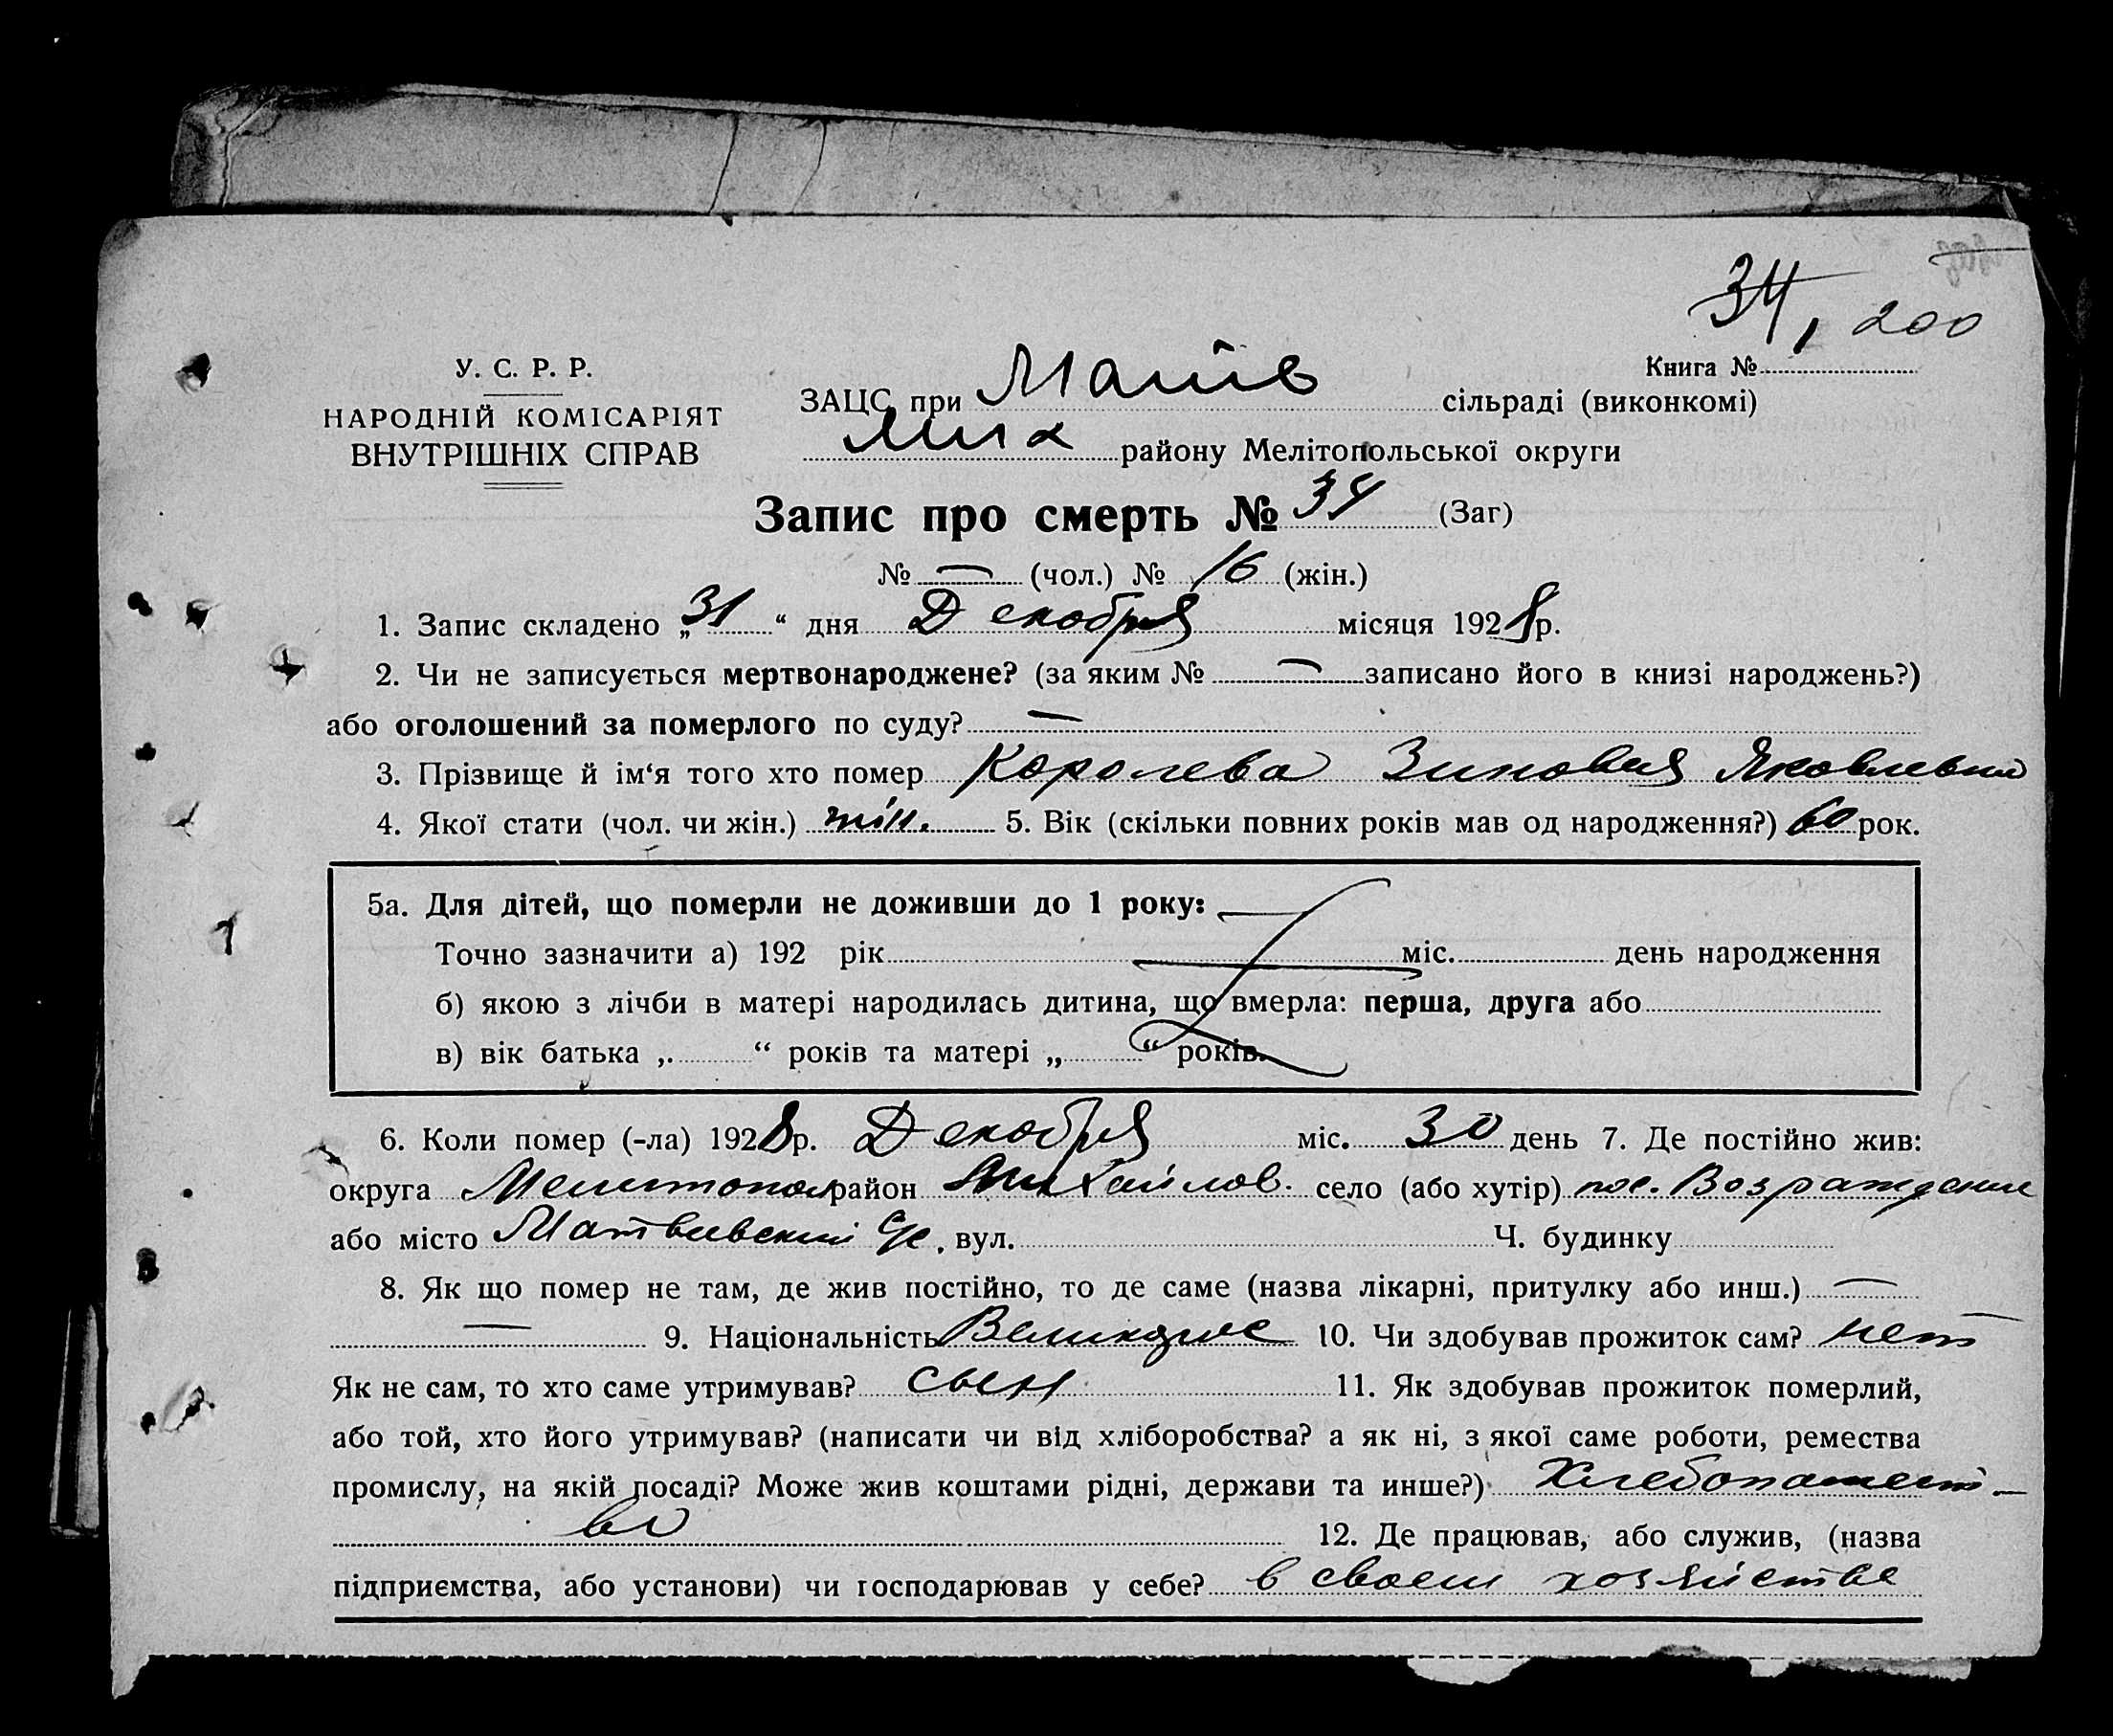 34, 200
У. С. Р. Р.
НАРОДНІЙ КОМІСАРІЯТ
ВНУТРІШНІХ СПРАВ
Книга №
ЗАЦС при Матв сільраді (виконкомі)
Мих району Мелітопольської округи
Запис про смерть № 34 (Заг)
№ — (чол.) № 16 (жін.)
1. Запис складено „31“ дня Декабря місяця 1928 р.
2. Чи не записується мертвонароджене? (за яким № — записано його в книзі народжень?)
або оголошений за померлого по суду? —
3. Прізвище й ім‘я того хто помер Королева Зиновия Яковлевна
4. Якої стати (чол. чи жін.) жін. 5. Вік (скільки повних років мав од народження?) 60 рок.
5а. Для дітей, що померли не доживши до 1 року:
Точно зазначити а) 192 рік міс. день народження
б) якою з лічби в матері народилась дитина, що вмерла: перша, друга або
в) вік батька „ “ років та матері „ “ років.
6. Коли помер (-ла) 1928 р. Декабря міс. 30 день 7. Де постійно жив:
округа Мелитопол район Михайлов. село (або хутір) пос. Возраждение
або місто Матвеевский с/с. вул. Ч. будинку
8. Як що помер не там, де жив постійно, то де саме (назва лікарні, притулку або инш.) —
— 9. Національність 10. Чи здобував прожиток сам? нет
Як не сам, то хто саме утримував? сын 11. Як здобував прожиток померлий,
або той, хто його утримував? (написати чи від хліборобства? а як ні, з якої саме роботи, ремества
промислу, на якій посаді? Може жив коштами рідні, держави та инше?) Хлебопашест-
во 12. Де працював, або служив, (назва
підприємства, або установи) чи господарював у себе? в своем хозяйстве